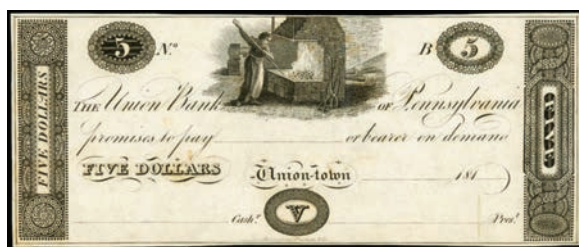 5 No. B 5
THE Union Bank OF Pennsylvania
promises to pay or bearer on demand
FIVE DOLLARS Union-town 181
V
Cashr. Prest.
FIVE DOLLARS